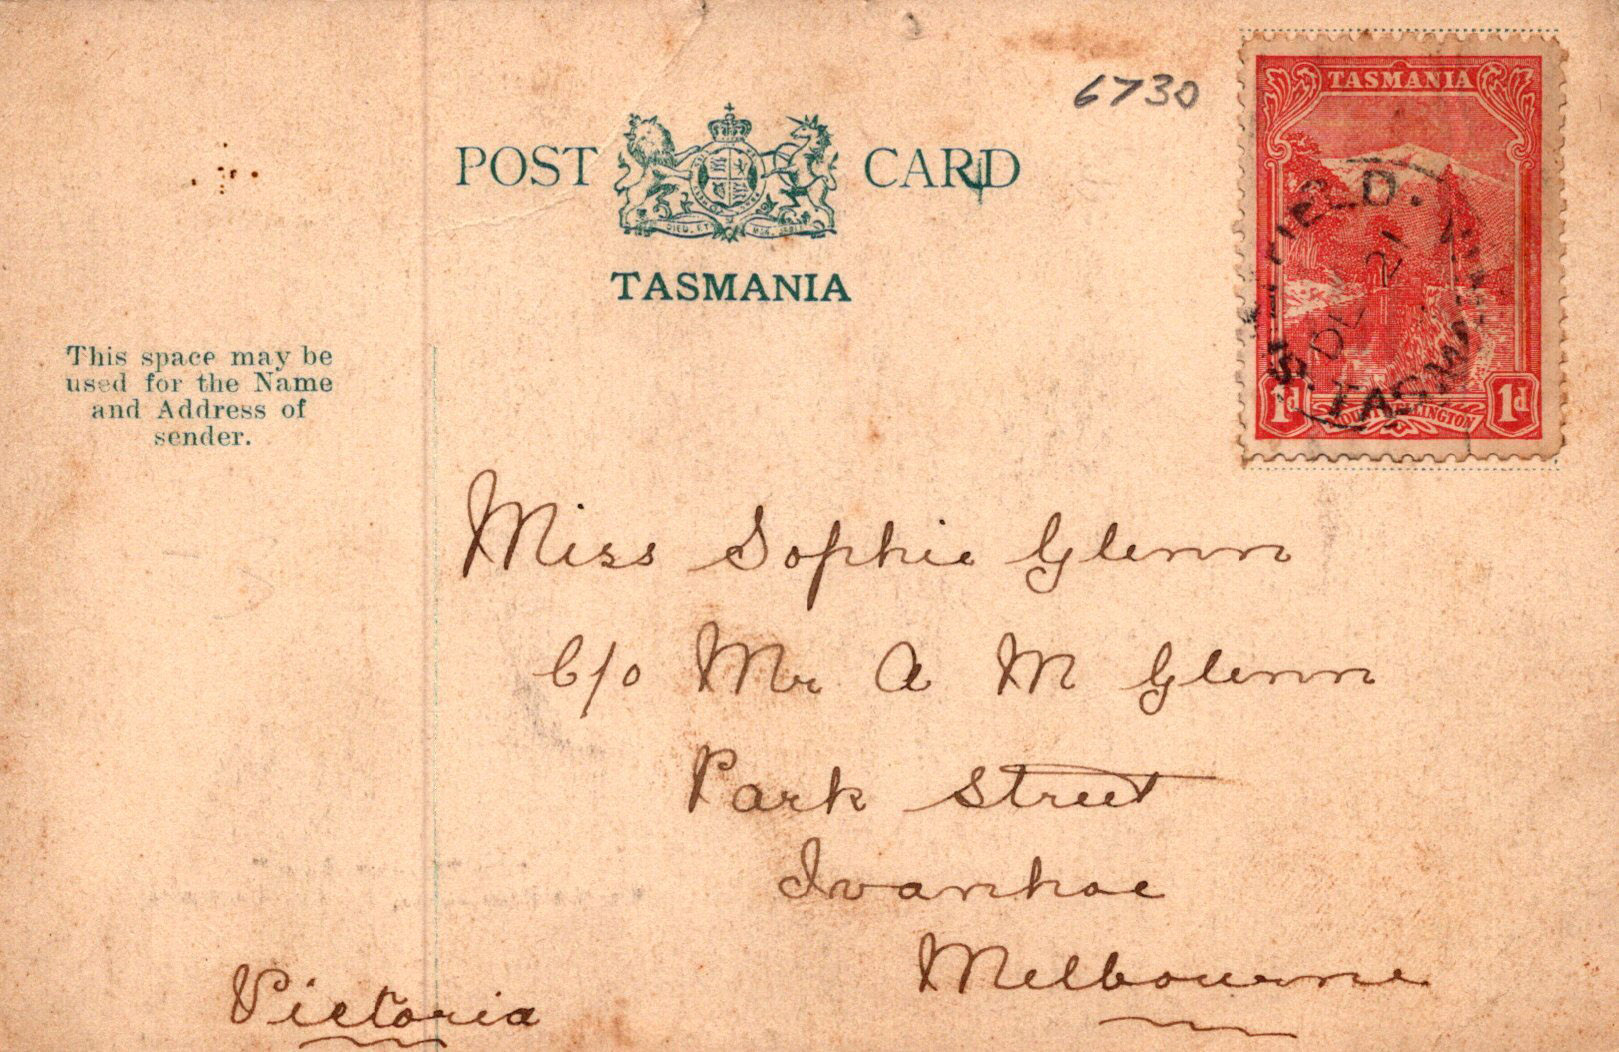 6730
POST CARD
DIEU ET MON DROIT
TASMANIA
TASMANIA
FIELD.
21
TASMANIA
1d
MOUNT WELLINGTON
1d
This space may be
used for the Name
and Address of
sender.
Miss Sophie Glenn
C/o Mr A M Glenn
Park Street
Ivanhoe
Melbourne
Victoria